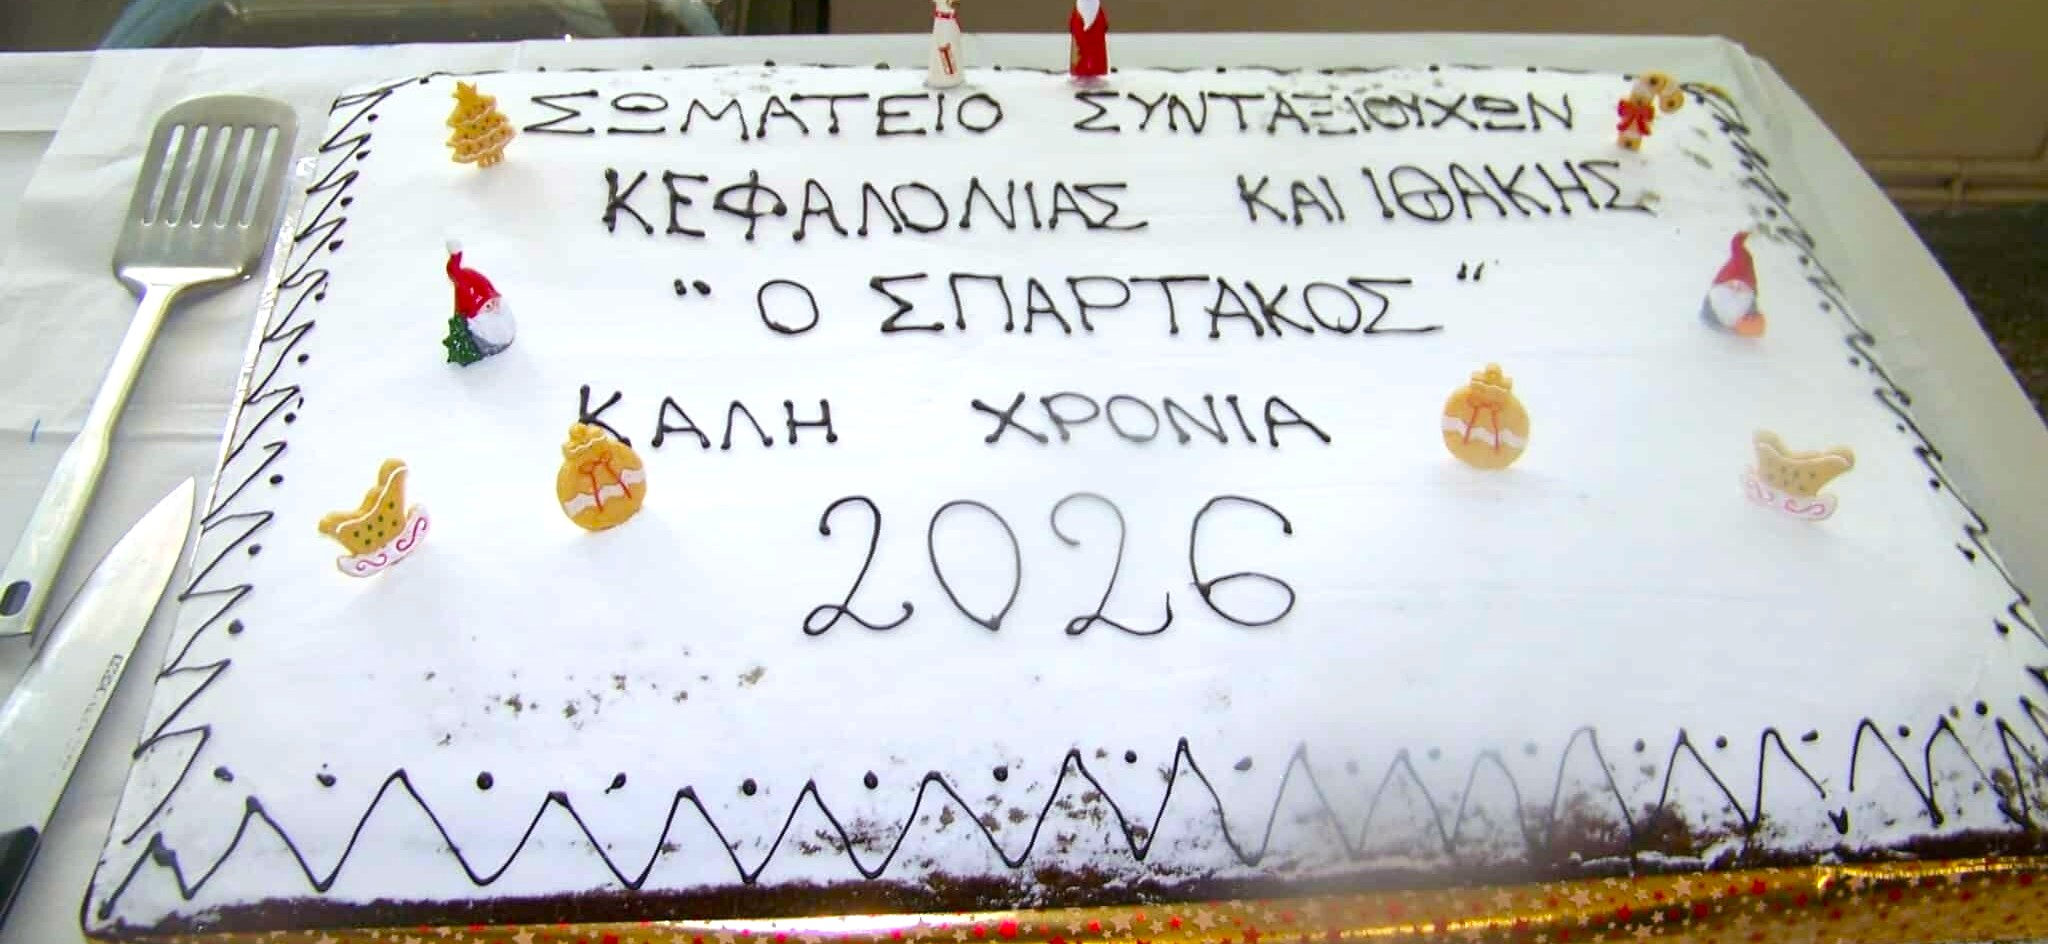 ΣΩΜΑΤΕΙΟ ΣΥΝΤΑΞΙΟΥΧΩΝ
ΚΕΦΑΛΟΝΙΑΣ ΚΑΙ ΙΘΑΚΗΣ
"Ο ΣΠΑΡΤΑΚΟΣ"
ΚΑΛΗ ΧΡΟΝΙΑ
2026